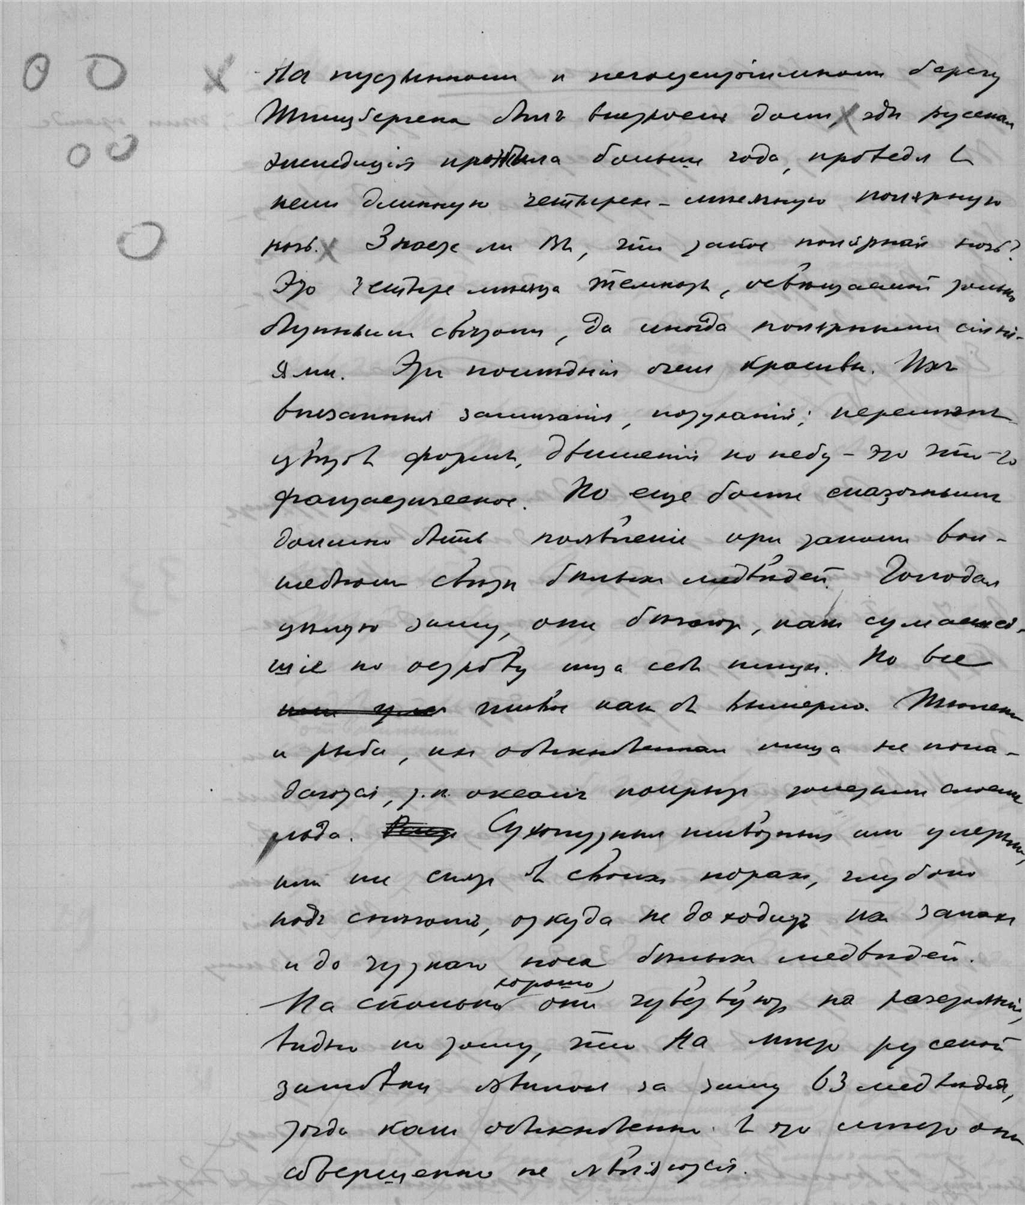 На пустынномъ и негостепріимномъ берегу
Шпицбергена былъ выстроенъ домъ, гдѣ русская
экспедиція прожила больше года, проведя в
немъ длинную четырех-мѣсячную полярную
ночь. Знаете ли Вы, что такое полярная ночь?
Это четыре мѣсяца темноты, освѣщаемой только
луннымъ свѣтомъ, да иногда полярными сіяні-
ями. Эти послѣднія очень красивы. Ихъ
внезапныя зажиганія, потуханія; перемѣны
цвѣтов формы, движенія по небу – это что-то
фантастическое. Но еще болѣе сказочнымъ
должно быть появленіе при такомъ вол-
шебномъ свѣтѣ бѣлыхъ медвѣдей. Голодая
цѣлую зиму, они бѣгаютъ, какъ сумасшед-
шіе по острову ища себѣ пищи. Но все
живое какъ бы вымерло. Тюлени
и рыба, их обыкновенная пища не попа-
даются, т.к. океанъ покрытъ толстымъ слоемъ
льда. Сухопутныя животныя или умерли,
или же спятъ в своихъ норахъ, глубоко
подъ снѣгомъ, откуда не доходитъ их запахъ
и до чуткаго носа бѣлыхъ медвѣдей.
На сколько хорошо они чувствуютъ на разстояніи,
видно по тому, что на мѣсто русской
зимовки явилось за зиму 63 медвѣдя,
тогда какъ обыкновенно в это мѣсто они
совершенно не являются.